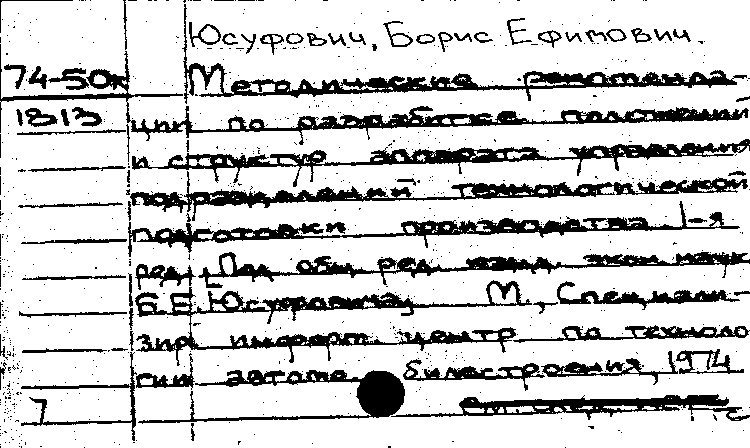 Юсуфович, Борис Ефимович.
74-50к Методические рекоменда-
1313 ции по разработке положений
и структур аппарата управления
подразделений технологической
подготовки производства. 1-я
ред. Под общ. ред. канд. экон. наук
Б.Е. Юсуфовича, М., Специали-
зир. информ. центр по техноло
гии автомо билестроения, 1974
7